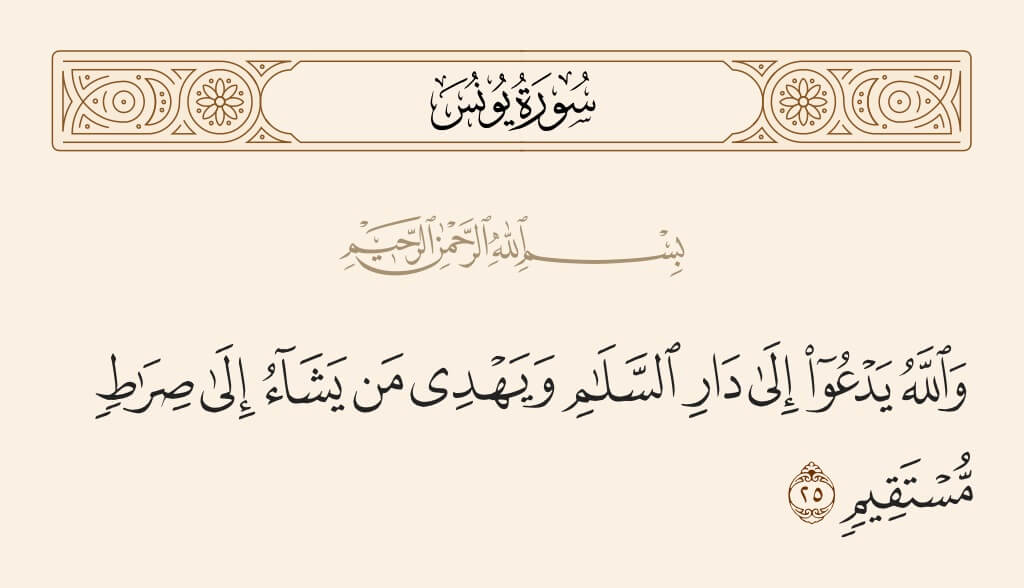 سُورَةُ يُونُسَ
بِسْمِ ٱللَّهِ ٱلرَّحْمَٰنِ ٱلرَّحِيمِ
وَٱللَّهُ يَدْعُوٓا۟ إِلَىٰ دَارِ ٱلسَّلَٰمِ وَيَهْدِى مَن يَشَآءُ إِلَىٰ صِرَٰطٍ
مُّسْتَقِيمٍ ٢٥